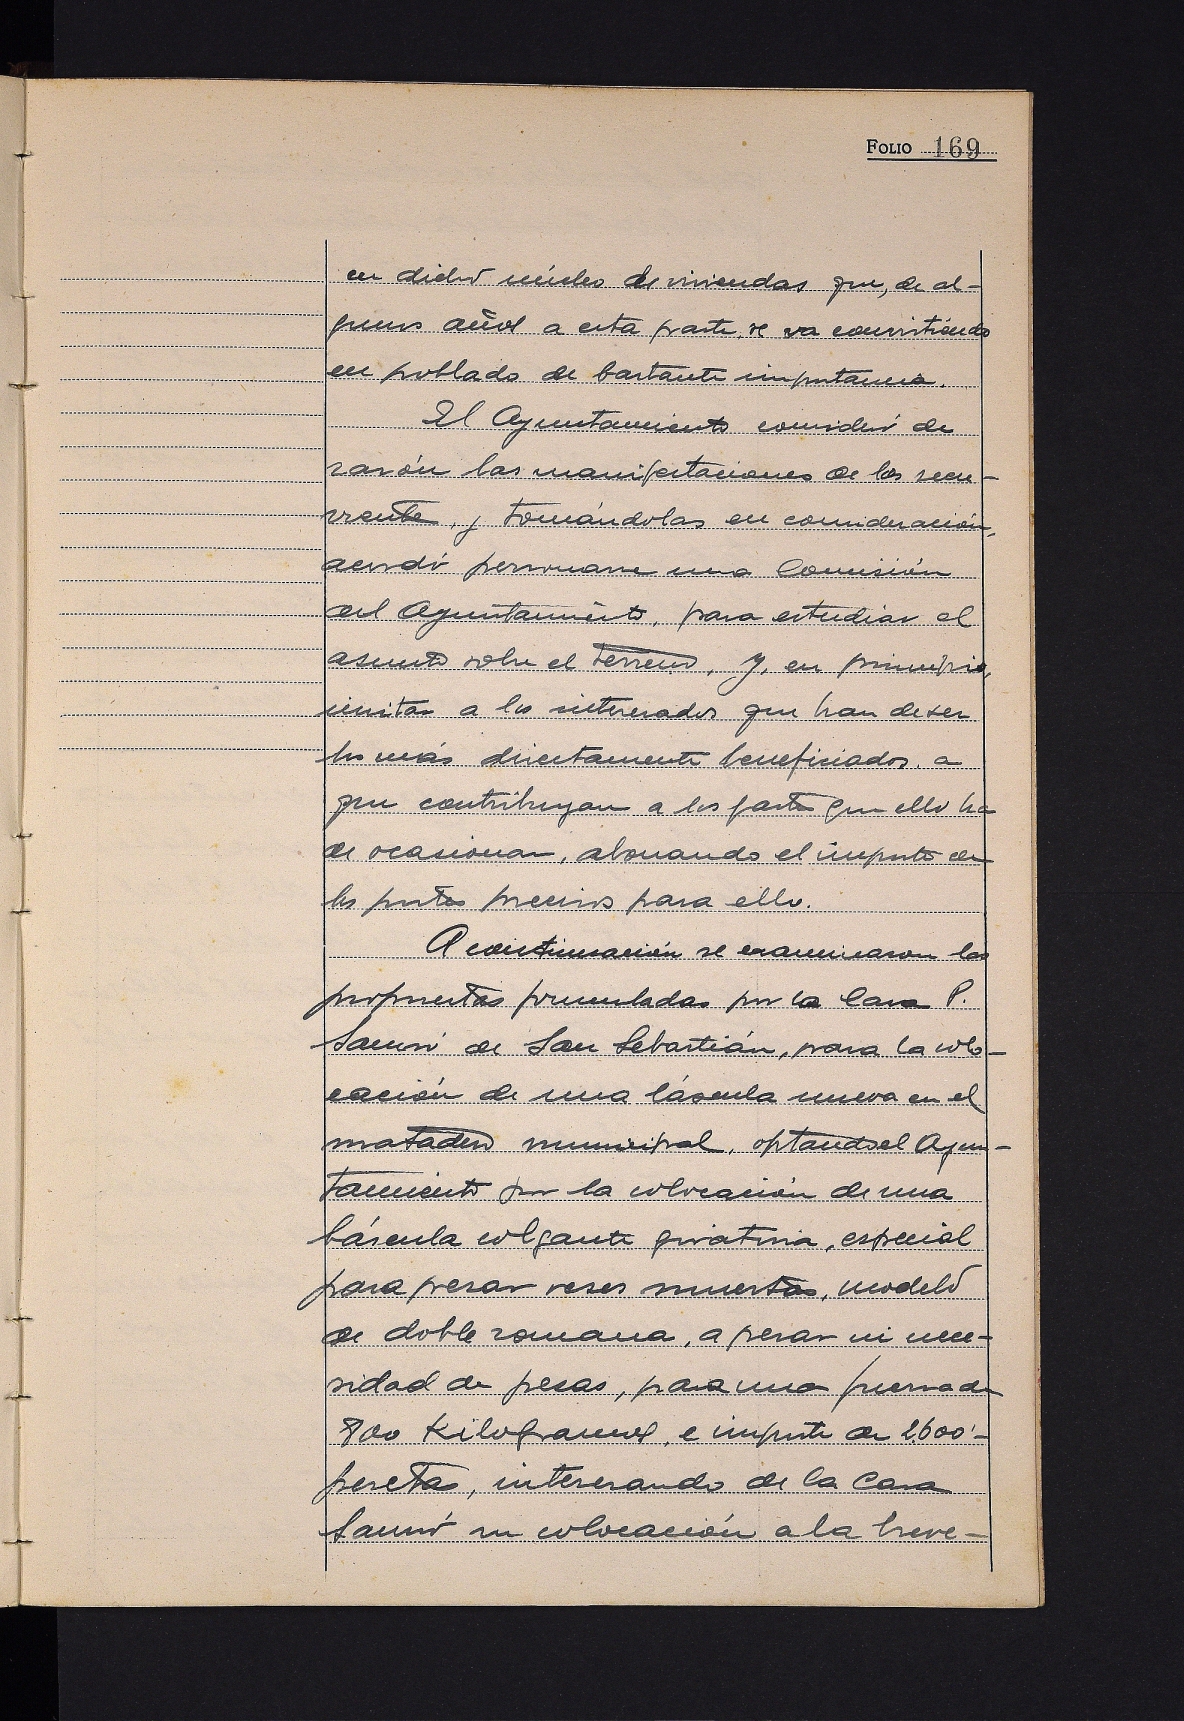 FOLIO 169
en dicho núcleo de viviendas que, de al-
gunos años a esta parte, se va convirtiendo
en poblado de bastante importancia.
El Ayuntamiento consideró de
razón las manifestaciones de los recu-
rrentes, y tomándolas en consideración,
acordó personarse una Comisión
del Ayuntamiento, para estudiar el
asunto sobre el terreno, y, en principio,
invitar a los interesados que han de ser
los más directamente beneficiados, a
que contribuyan a los gastos que ello ha
de ocasionar, abonando el importe de
los postes precisos para ello.
A continuación se examinaron las
propuestas formuladas por la Casa P.
de San Sebastián, para la colo-
cación de una báscula nueva en el
matadero municipal, optando el Ayun-
tamiento por la colocación de una
báscula colgante giratoria, especial
para pesar reses muertas, modelo
de doble romana, a pesar sin nece-
sidad de pesas, para una fuerza de
800 Kilogramos, e importe de 2.600'-
pesetas, interesando de la Casa
su colocación a la breve-